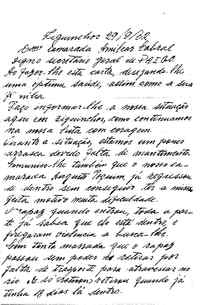 Ziguinchor 29/9/62
Camarada Amílcar Cabral
digno secretário geral do PAIGC
Ao fazer-lhe esta carta, desejando-lhe
uma optima saúde, assim como a sua
Faço informar-lhe a nossa situação
aqui em Ziguinchor, como continuamos
na nossa luta com coragem
a situação, estamos um pouco
devido falta de mantimento.
também que o nosso ca-
marada Augusto já regressou
de dentro sem conseguir ter a nossa
gente motivo muita dificuldade.
O rapaz quando entrou, toda a par-
te já sabia que ele está dentro, e
pregaram violencia a busca-lhe.
Com tanta massada que o rapaz
passou sem poder se retirar por
falta de trasporte para atravessar no
rio retirar quando já
tinha 18 dias lá dentro.